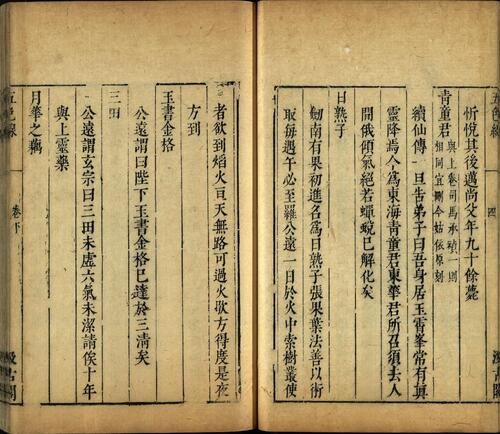 忻悅其後邁尚父年九十餘薨
青童君與上卷司馬承禎一則
相同宜刪今姑依原刻
續仙傳一旦告弟子曰吾身居玉霄峯常有真
靈降焉今為東海青童君東華君所召須去人
間俄傾氣絕若蟬蛻已解化矣
日熟子
劒南有果初進名為日熟子張果葉法善以術
取每遇午必至羅公遠一日於火中索樹叢使
者欲到熖火亘天無路可過火歇方得度是夜
方到
玉書金格
公遠謂曰陛下玉書金格已達於三清矣
三田
公遠謂玄宗曰三田未虛六氣未潔請俟十年
與上靈藥
月華之藕
五色線
卷下
汲古閣
四